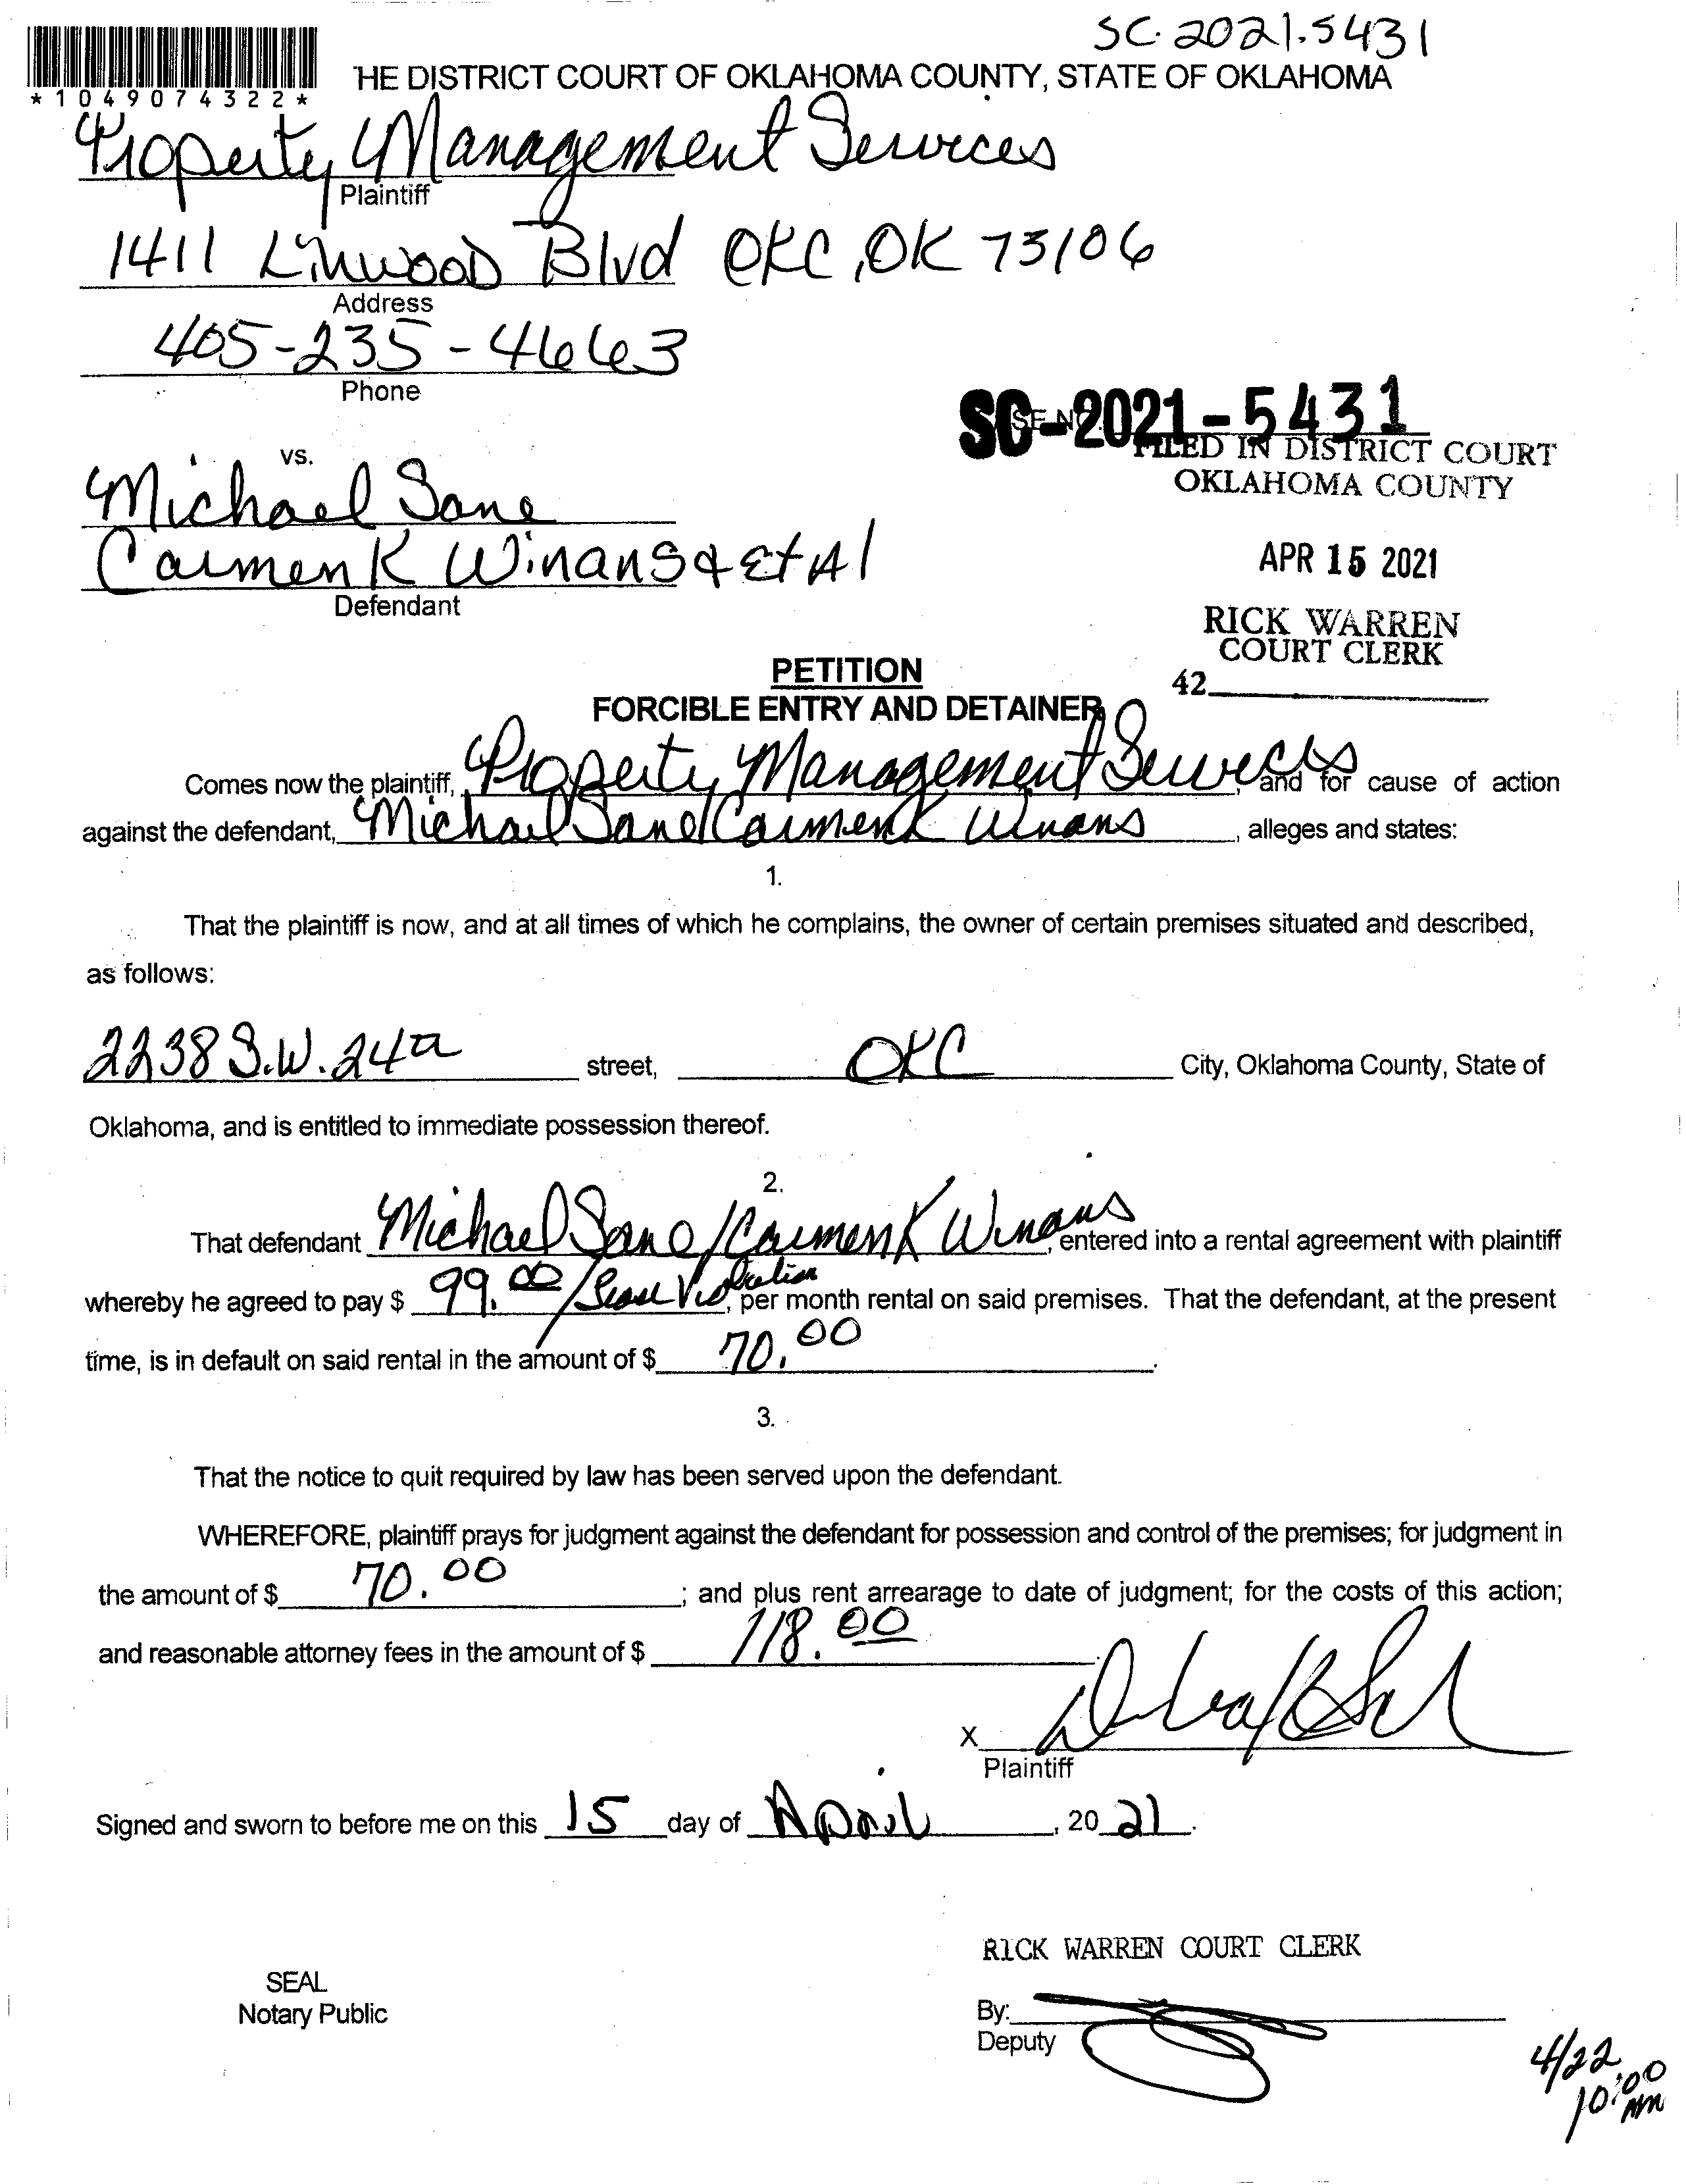 SC-2021-5431
*1049074322*
HE DISTRICT COURT OF OKLAHOMA COUNTY, STATE OF OKLAHOMA
Property Management Services
Plaintiff
1411 Linwood Blvd OKC, OK 73106
Address
405-235-4663
Phone
SC-2021-5431
vs.
FILED IN DISTRICT COURT
OKLAHOMA COUNTY
Michael Sane
Carmen K Winans & Et Al
Defendant
APR 15 2021
RICK WARREN
COURT CLERK
42
PETITION
FORCIBLE ENTRY AND DETAINER
Comes now the plaintiff, Property Management Services, and for cause of action
against the defendant, Michael Sane/Carmen K Winans, alleges and states:
1.
That the plaintiff is now, and at all times of which he complains, the owner of certain premises situated and described,
as follows:
2238 S.W. 24 street, OKC City, Oklahoma County, State of
Oklahoma, and is entitled to immediate possession thereof.
2.
That defendant Michael Sane/Carmen K Winans, entered into a rental agreement with plaintiff
whereby he agreed to pay $ 99.00/Lease Violation, per month rental on said premises. That the defendant, at the present
time, is in default on said rental in the amount of $ 70.00.
3.
That the notice to quit required by law has been served upon the defendant.
WHEREFORE, plaintiff prays for judgment against the defendant for possession and control of the premises; for judgment in
the amount of $ 70.00; and plus rent arrearage to date of judgment; for the costs of this action;
and reasonable attorney fees in the amount of $ 118.00.
X
Plaintiff
Signed and sworn to before me on this 15 day of April, 20 21.
RICK WARREN COURT CLERK
SEAL
Notary Public
By:
Deputy
4/22
10:00
AM